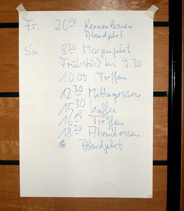 Fr. 20⁰⁰ Kennenlernen
Abendplot
Sa 8³⁰ Morgenplot
Frühstück bis 9³⁰
10.00 Treffen
12³⁰ Mittagessen
15³⁰ Kaffee
Treffen
18³⁰ Abendessen
Abendplot